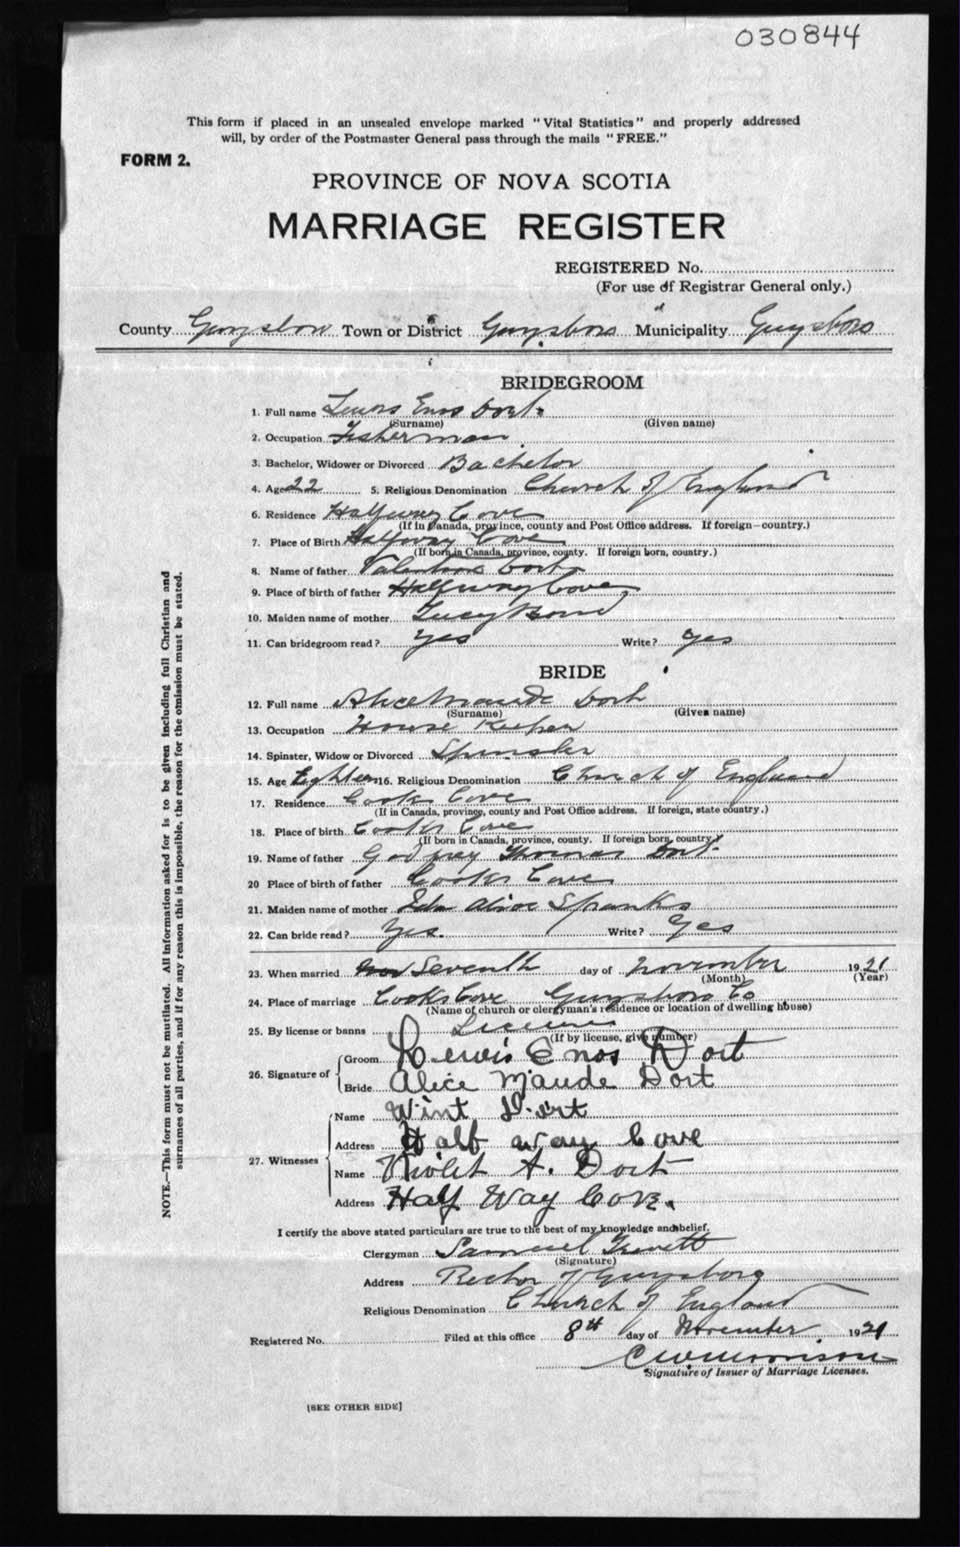 030844
This form if placed in an unsealed envelope marked "Vital Statistics" and properly addressed
will, by order of the Postmaster General pass through the mails "FREE."
FORM 2.
PROVINCE OF NOVA SCOTIA
MARRIAGE REGISTER
REGISTERED No.
(For use of Registrar General only.)
County Guysboro Town or District Guysboro Municipality Guysboro
BRIDEGROOM
1. Full name Lewis Enos Dort
(Surname) (Given name)
2. Occupation Fisherman
3. Bachelor, Widower or Divorced Bachelor
4. Age 22 5. Religious Denomination Church of England
6. Residence Halfway Cove
(If in Canada, province, county and Post Office address. If foreign—country.)
7. Place of Birth Halfway Cove
(If born in Canada, province, county. If foreign born, country.)
8. Name of father Valentine Dort
9. Place of birth of father Halfway Cove
10. Maiden name of mother Lucy Bond
11. Can bridegroom read? Yes Write? Yes
BRIDE
12. Full name Alice Maude Dort
(Surname) (Given name)
13. Occupation House Keeper
14. Spinster, Widow or Divorced Spinster
15. Age Eighteen 16. Religious Denomination Church of England
17. Residence Cooks Cove
(If in Canada, province, county and Post Office address. If foreign, state country.)
18. Place of birth Cooks Cove
(If born in Canada, province, county. If foreign born, country.)
19. Name of father Godfrey Thomas Dort
20 Place of birth of father Cooks Cove
21. Maiden name of mother Alice Spanks
22. Can bride read? Yes. Write? Yes
23. When married Seventh day of November 1921
(Month) (Year)
24. Place of marriage Cooks Cove Guysboro Co
(Name of church or clergyman's residence or location of dwelling house)
25. By license or banns License
(If by license, give number)
26. Signature of
Groom Lewis Enos Dort
Bride Alice Maude Dort
27. Witnesses
Name Wint Dort
Address Half way Cove
Name Violet A. Dort
Address Half Way Cove.
I certify the above stated particulars are true to the best of my knowledge and belief.
Clergyman Samuel Trivett
(Signature)
Address Rector of Guysboro
Religious Denomination Church of England
Registered No. Filed at this office 8th day of November 1921
C W Morrison
Signature of Issuer of Marriage Licenses.
[SEE OTHER SIDE]
NOTE.—This form must not be mutilated. All information asked for is to be given including full Christian and
surnames of all parties, and if for any reason this is impossible, the reason for the omission must be stated.